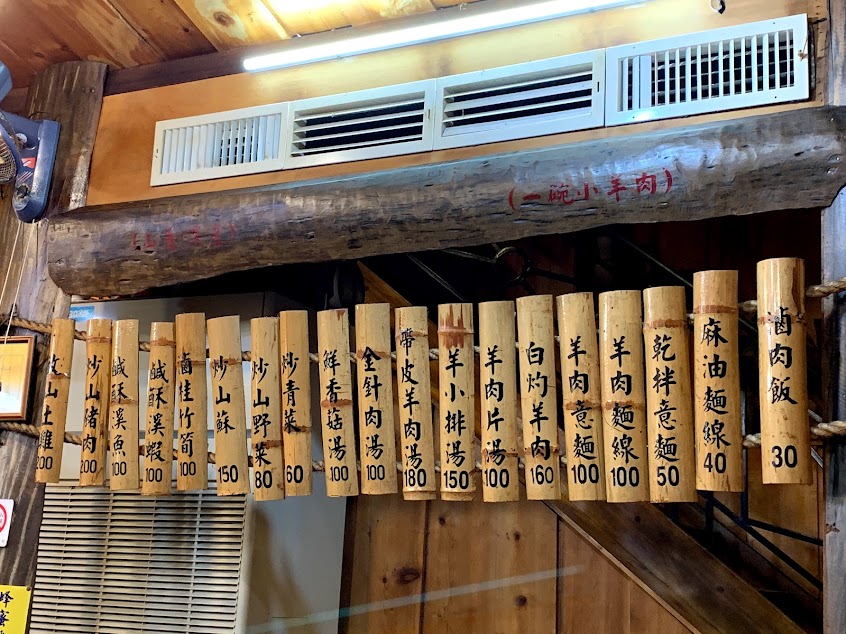 (一碗小羊肉)
滷肉飯 30
麻油麵線 40
乾拌意麵 50
羊肉麵線 100
羊肉意麵 100
白灼羊肉 160
羊肉片湯 100
羊小排湯 150
帶皮羊肉湯 180
金針肉湯 100
鮮香菇湯 100
炒青菜 60
炒山野菜 80
炒山蘇 150
滷桂竹筍 100
鹹酥溪蝦 100
鹹酥溪魚 100
炒山豬肉 200
放山土雞 200
蜂蜜